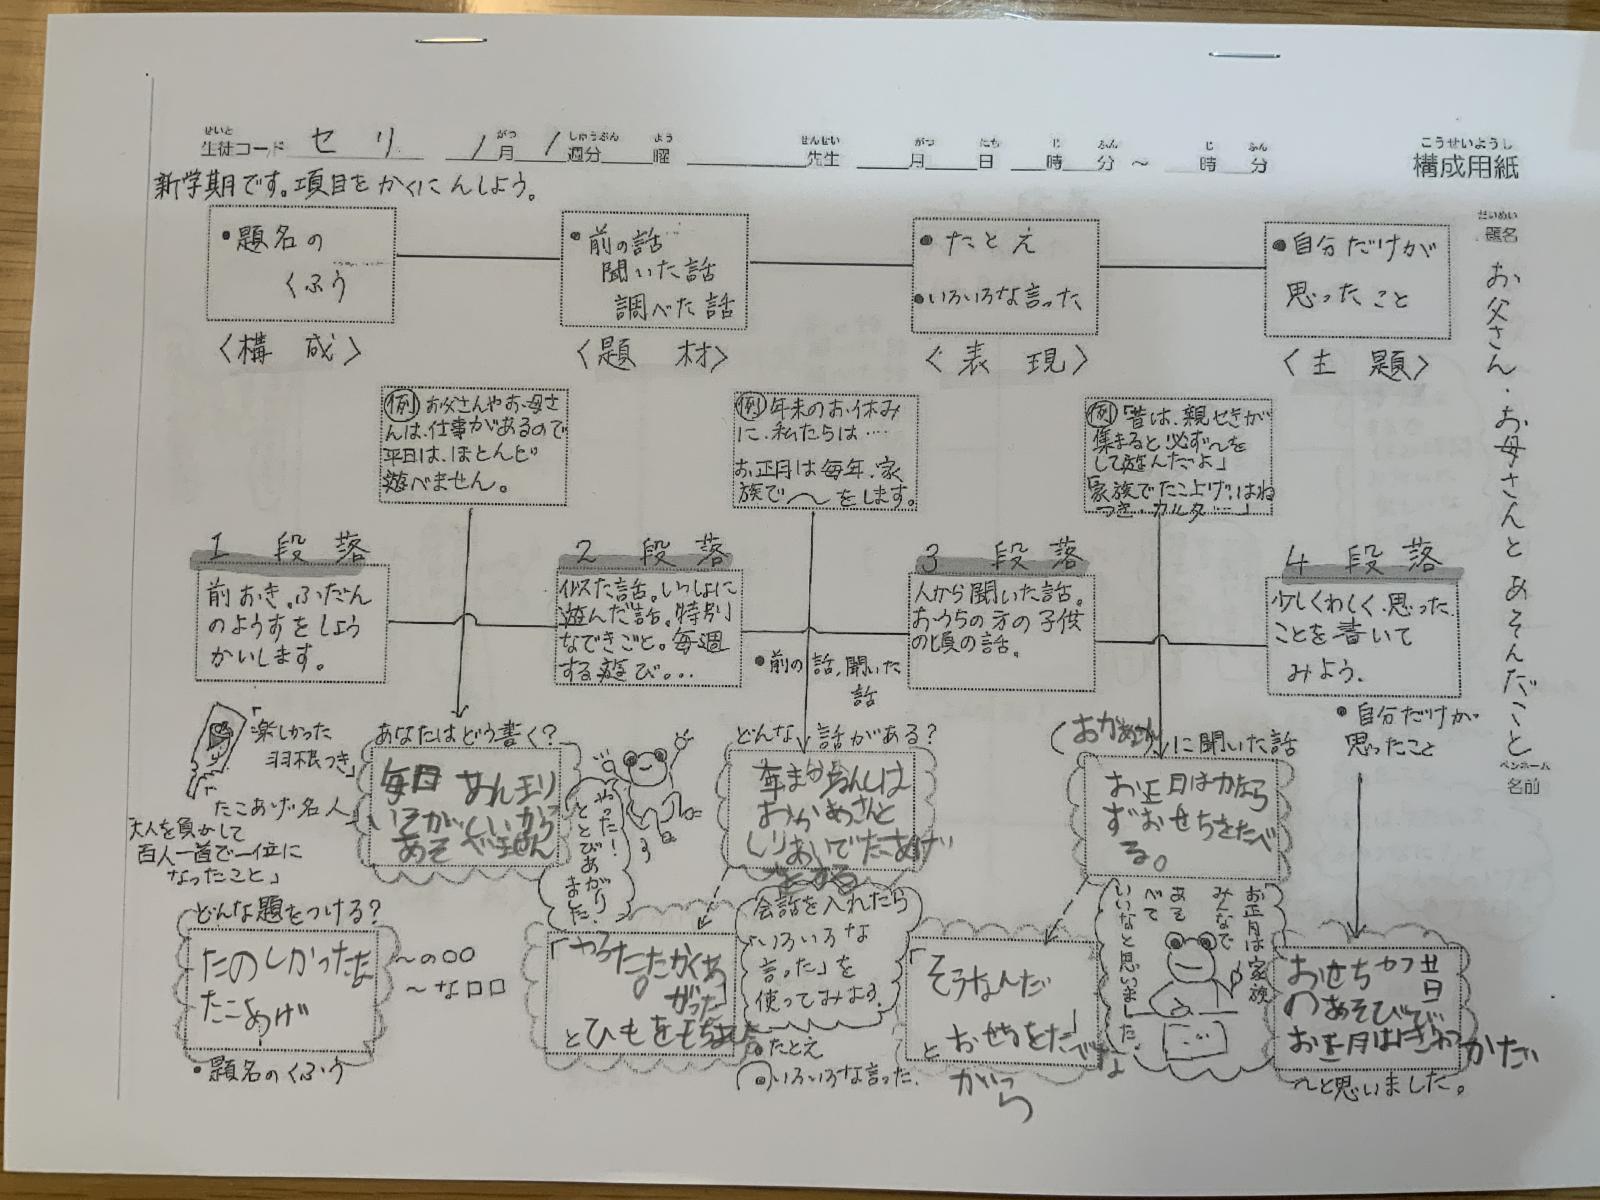 せいと
生徒コード セリ 1月 1週分 曜 先生 月 日 時 分 ～ 時 分
がつ しゅうぶん よう せんせい がつ にち じ ふん じ ふん
こうせいようし
構成用紙
新学期です。項目をかくにんしよう。
だいめい
題名
お父さん・お母さんとあそんだこと
ペンネーム
名前
・題名の
くふう
〈構 成〉
・前の話
聞いた話
調べた話
〈題 材〉
・たとえ
・いろいろな言った
〈表 現〉
・自分だけが
思ったこと
〈主 題〉
例 お父さんやお母さ
んは、仕事があるので
平日は、ほとんど
遊べません。
例 年末のお休み
に、私たちは…
お正月は毎年、家
族で～をします。
例 「昔は、親せきが
集まると、必ず～を
して遊んだよ」
家族でたこ上げ、はね
つき、カルタ…」
1 段 落
前おき。ふだん
のようすをしょう
かいします。
2 段 落
似た話。いっしょに
遊んだ話。特別
なできごと。毎週
する遊び。…
・前の話、聞いた
話
3 段 落
人から聞いた話。
おうちの方の子供
の頃の話。
4 段 落
少しくわしく、思った
ことを書いて
みよう。
・自分だけが
思ったこと
「楽しかった
羽根つき」
「たこあげ名人」
「大人を負かして
百人一首で一位に
なったこと」
あなたはどう書く?
毎日 あんまり
いそがしいから
あそべません
やった!
ととびあがり
ました。
どんな話がある?
おかあさんと
しりあいでたこあげ
をする
(おかあさん)に聞いた話
お正月はかなら
ずおせちをたべ
る。
どんな題をつける?
たのしかったな
たこあげ
～の○○
～な□□
・題名のくふう
「やったーたかくあ
がった」
とひもをもちながら
会話を入れたら
「いろいろな
言った」を
使ってみよう。
・たとえ
・いろいろな言った
「そうなんだ」
と おせちをたべな
がら
お正月は家族
みんなで
あそ
べて
いいなと思いました。
おせちや昔
のあそびで
お正月はにぎやかだ
～と思いました。